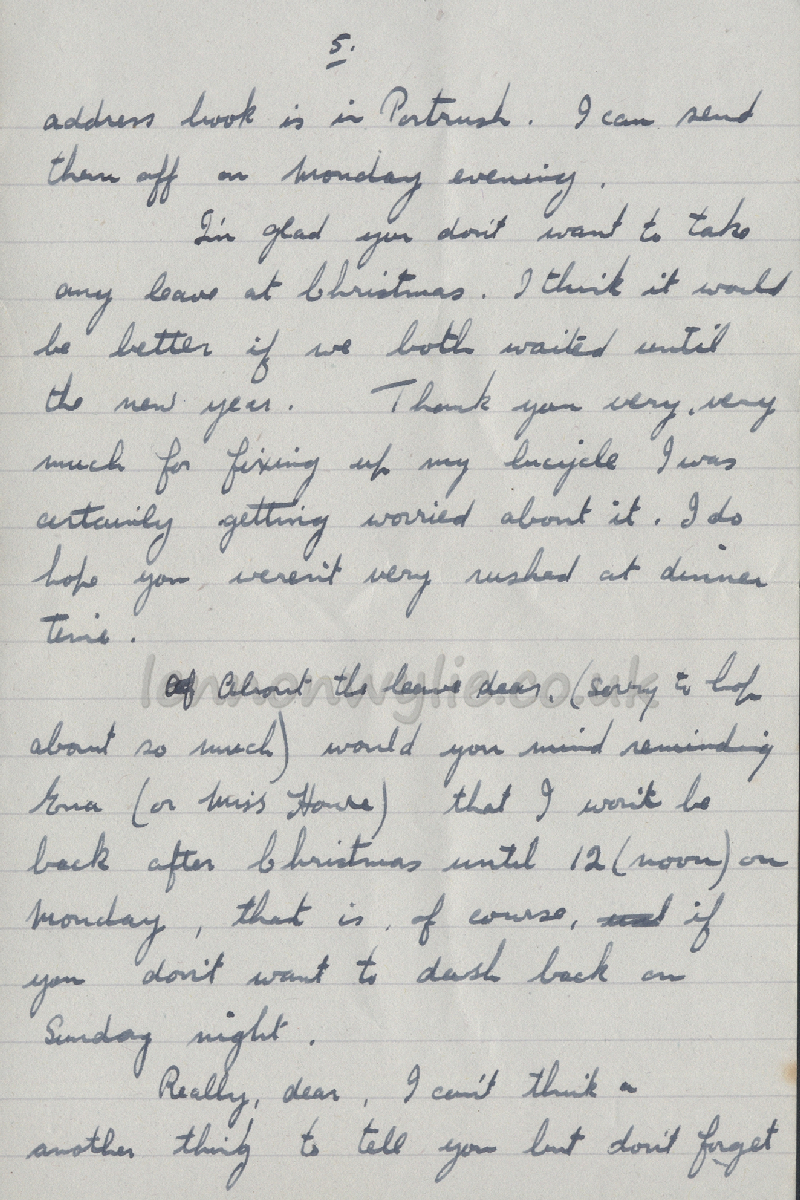 5.
address book is in Portrush. I can send
them off on Monday evening.
I'm glad you don't want to take
any leave at Christmas. I think it would
be better if we both waited until
the new year. Thank you very, very
much for fixing up my bicycle I was
certainly getting worried about it. I do
hope you weren't very rushed at dinner
time.
lennonwylie.co.uk
About the leave dear, (sorry to hop
about so much) would you mind reminding
Ena (or Miss Howe) that I won't be
back after Christmas until 12 (noon) on
Monday, that is, of course, if
you don't want to dash back on
Sunday night.
Really, dear, I can't think a
another thing to tell you but don't forget